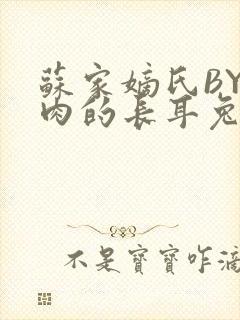 蘇家嫡氏BY
肉的長耳兔
不是寶寶咋滴